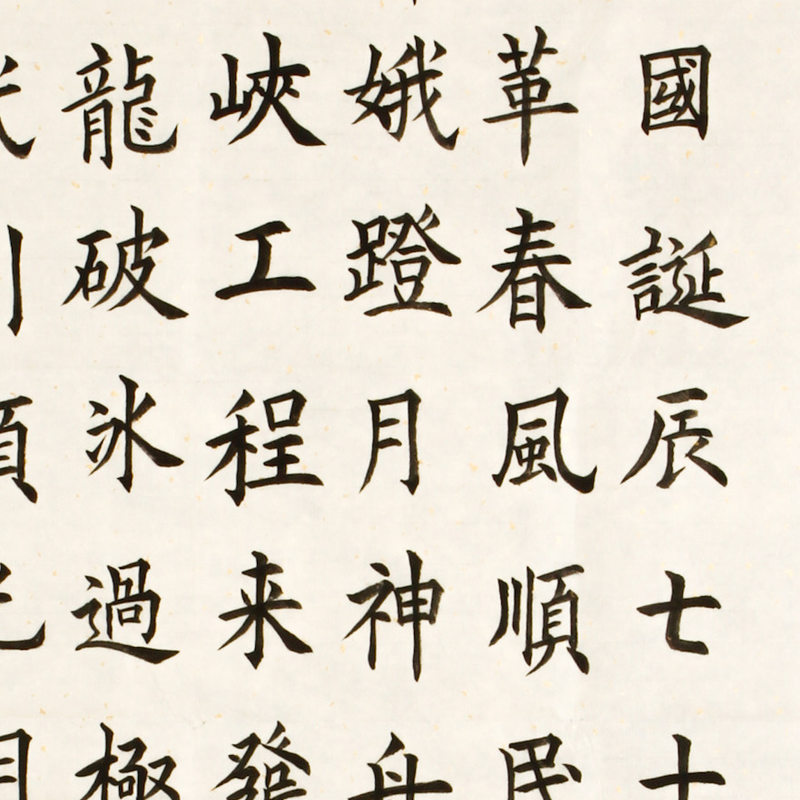 國誕辰七十
革春風順民
娥蹬月神舟
峽工程来發
龍破冰過極